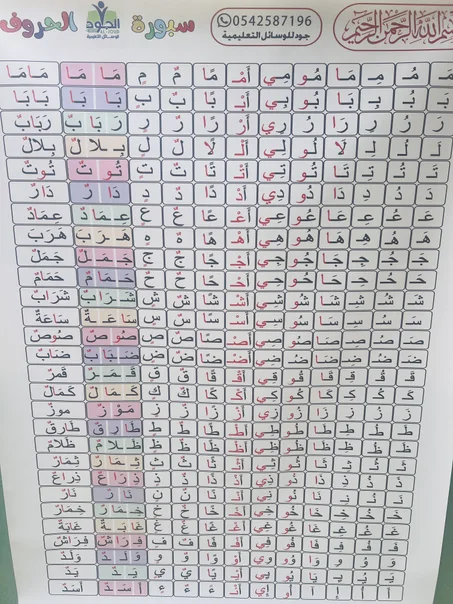 بسم الله الرحمن الرحيم 0542587196 جود للوسائل التعليمية الجود للوسائل التعليمية سبورة الحروف
مَـ مُـ مِـ مَا مُو مِي أَمْ مًا مٌ مٍ مَا مَا مَامَا
بَـ بُـ بِـ بَا بُو بِي أَبْ بًا بٌ بٍ بَا بَا بَابَا
رَ رُ رِ رَا رُو رِي أَرْ رًا رٌ رٍ رَ بَا بٌ رَبَابٌ
لَـ لُـ لِـ لَا لُو لِي أَلْ لًا لٌ لٍ بِـ لَا لٌ بِلَالٌ
تَـ تُـ تِـ تَا تُو تِي أَتْ تًا تٌ تٍ تُو تٌ تُوتٌ
دَ دُ دِ دَا دُو دِي أَدْ دًا دٌ دٍ دَا رٌ دَارٌ
عَـ عُـ عِـ عَا عُو عِي أَعْ عًا عٌ عٍ عِـمَـادٌ عِمَادٌ
هَـ هُـ هِـ هَا هُو هِي أَهْ هًا هٌ هٍ هَـ رَ بَ هَرَبَ
جَـ جُـ جِـ جَا جُو جِي أَجْ جًا جٌ جٍ جَـمَـلٌ جَمَلٌ
حَـ حُـ حِـ حَا حُو حِي أَحْ حًا حٌ حٍ حَـمَـامٌ حَمَامٌ
شَـ شُـ شِـ شَا شُو شِي أَشْ شًا شٌ شٍ شَـرَابٌ شَرَابٌ
سَـ سُـ سِـ سَا سُو سِي أَسْ سًا سٌ سٍ سَا عَـةٌ سَاعَةٌ
صَـ صُـ صِـ صَا صُو صِي أَصْ صًا صٌ صٍ صُو صٌ صُوصٌ
ضَـ ضُـ ضِـ ضَا ضُو ضِي أَضْ ضًا ضٌ ضٍ ضَـبَـابٌ ضَبَابٌ
قَـ قُـ قِـ قَا قُو قِي أَقْ قًا قٌ قٍ قَـمَـرٌ قَمَرٌ
كَـ كُـ كِـ كَا كُو كِي أَكْ كًا كٌ كٍ كَـمَـالٌ كَمَالٌ
زَ زُ زِ زَا زُو زِي أَزْ زًا زٌ زٍ مَوْزٌ موزٌ
طَـ طُـ طِـ طَا طُو طِي أَطْ طًا طٌ طٍ طَا رِ قٌ طَارِقٌ
ظَـ ظُـ ظِـ ظَا ظُو ظِي أَظْ ظًا ظٌ ظٍ ظَـلَامٌ ظَلَامٌ
ثَـ ثُـ ثِـ ثَا ثُو ثِي أَثْ ثًا ثٌ ثٍ ثِـمَـارٌ ثِمَارٌ
ذَ ذُ ذِ ذَا ذُو ذِي أَذْ ذًا ذٌ ذٍ ذِ رَا عٌ ذِرَاعٌ
نَـ نُـ نِـ نَا نُو نِي أَنْ نًا نٌ نٍ نَا رٌ نَارٌ
خَـ خُـ خِـ خَا خُو خِي أَخْ خًا خٌ خٍ خِـمَـارٌ خِمَارٌ
غَـ غُـ غِـ غَا غُو غِي أَغْ غًا غٌ غٍ غَا بَـةٌ غَابَةٌ
فَـ فُـ فِـ فَا فُو فِي أَفْ فًا فٌ فٍ فِـرَاشٌ فِرَاشٌ
وَ وُ وِ وَا وُو وِي أَوْ وًا وٌ وٍ وَ لَـدٌ وَلَدٌ
يَـ يُـ يِـ يَا يُو يِي أَيْ يًا يٌ يٍ يَـدٌ يَدٌ
أَ أُ إِ آ أُو إِي أَأْ ءً ءٌ ءٍ أَسَـدٌ أَسَدٌ